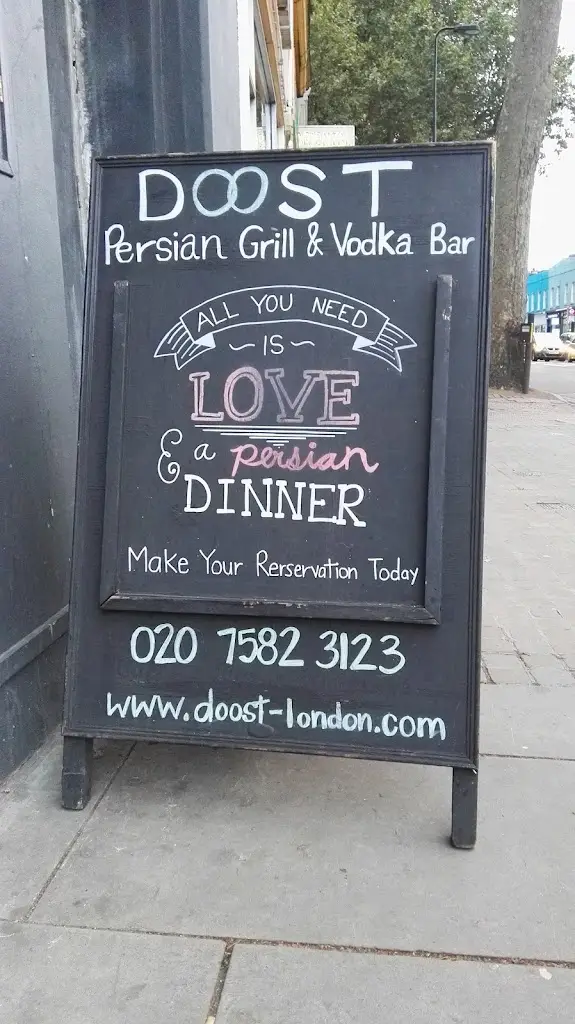 DOOST
Persian Grill & Vodka Bar
ALL YOU NEED
~IS~
LOVE
& a persian
DINNER
Make Your Rerservation Today
020 7582 3123
www.doost-london.com